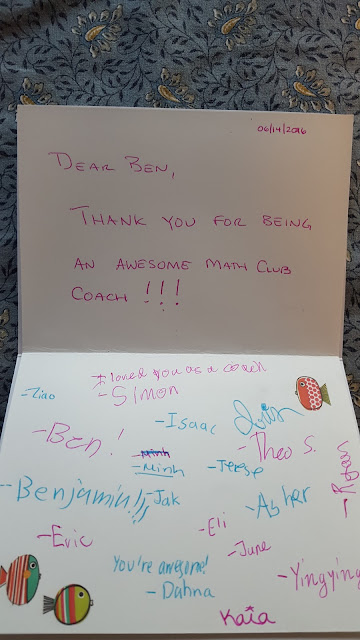 06/14/2016
DEAR BEN,
THANK YOU FOR BEING
AN AWESOME MATH CLUB
COACH !!!
I loved you as a coach
-Ziao
-Simon
-Isaac
-Ben!
-Theo S.
-Minh
-Minh
-Benjamin!!!
-Jak
-Asher
-Rohan
-Eric
-Eli
-June
You're awesome!
-Dahna
-Yingying
Kaia